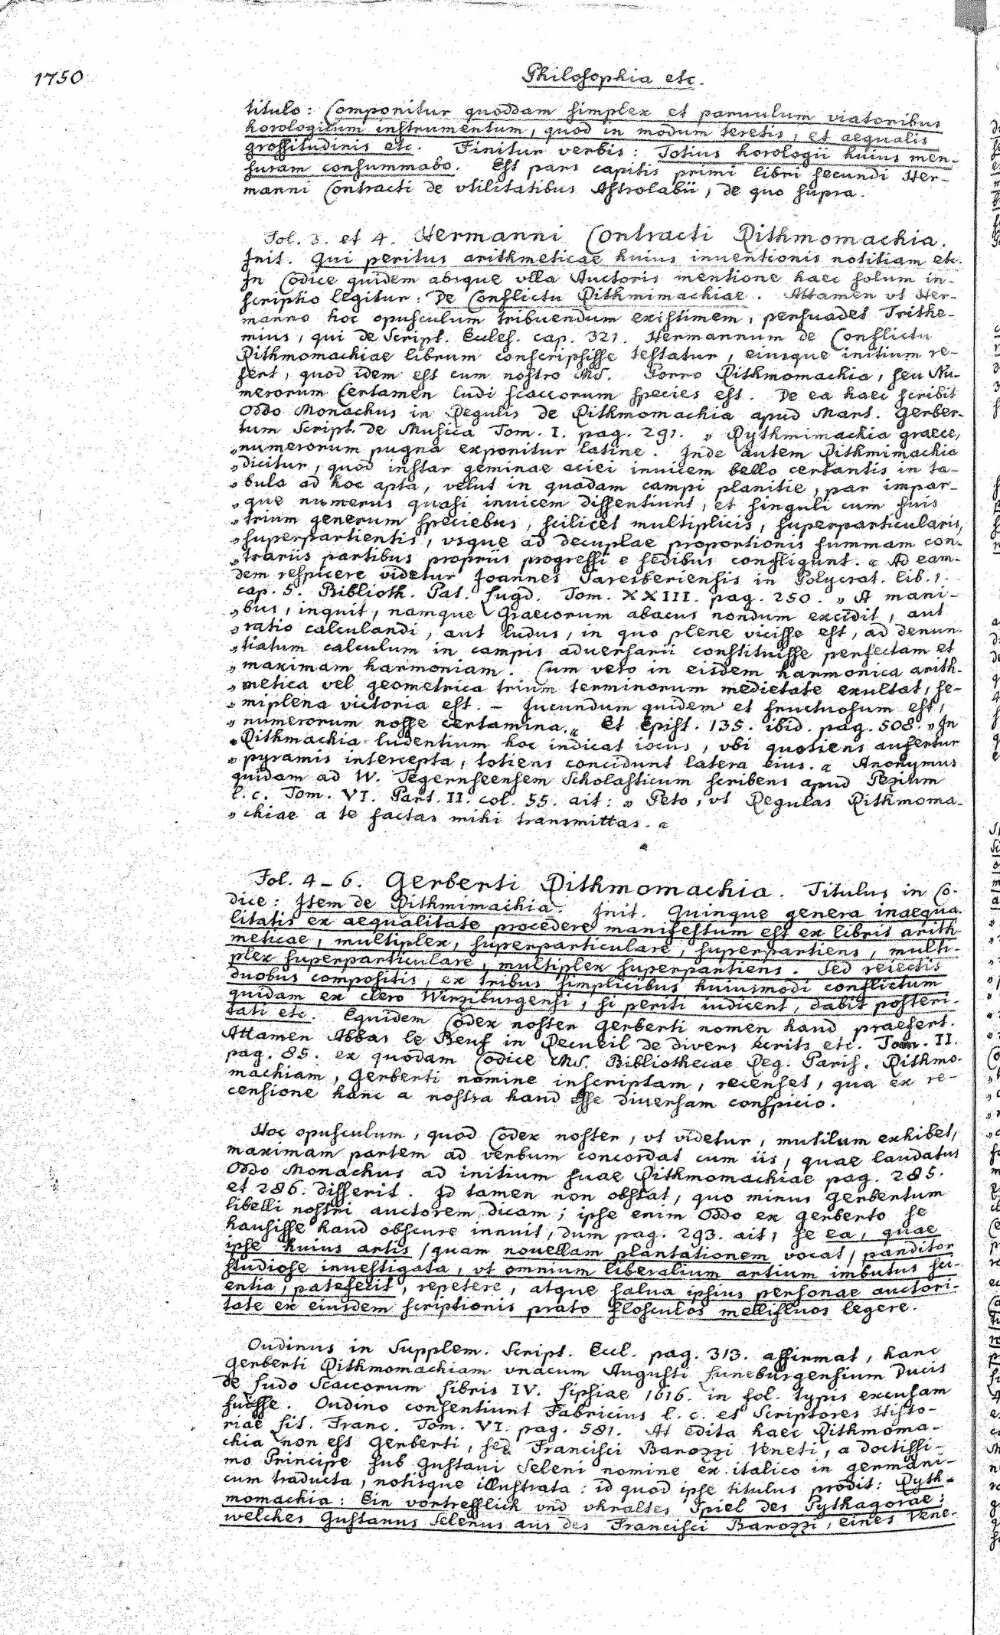 1750
Philosophia etc.
titulo: Componitur quoddam simplex et paruulum viatoribus
horologicum instrumentum, quod in modum teretis, et aequalis
grossitudinis etc. Finitur verbis: Totius horologii huius men-
suram consummabo. Est pars capitis primi libri secundi Her-
manni Contracti de vtilitatibus Astrolabii, de quo supra.
Fol. 3. et 4. Hermanni Contracti Rithmomachia.
Init. Qui peritus arithmeticae huius inuentionis notitiam etc.
In Codice quidem absque vlla Auctoris mentione haec solum in-
scriptio legitur: De Conflictu Rithmimachiae. Attamen vt Her-
manno hoc opusculum tribuendum existimem, persuadet Trithe-
mius, qui de Script. Eccles. cap. 321. Hermannum de Conflictu
Rithmomachiae librum conscripsisse testatur, eiusque initium re-
fert, quod idem est cum nostro MS. Porro Rithmomachia, seu Nu-
merorum Certamen ludi scaccorum species est. De ea haec scribit
Oddo Monachus in Regulis de Rithmomachia apud Mart. Gerber-
tum Script. de Musica Tom. I. pag. 291. „ Rythmimachia graece,
„numerorum pugna exponitur latine. Inde autem Rithmimachia
„dicitur, quod instar geminae aciei inuicem bello certantis in ta-
„bula ad hoc apta, velut in quadam campi planitie, par impar-
„que numerus quasi inuicem dissentiunt, et singuli cum suis
„trium generum speciebus, scilicet multiplicis, superparticularis,
„superpartientis, vsque ad decuplae proportionis summam con-
„trariis partibus propriis progressi e sedibus confligunt. “ Ad eam-
dem respicere videtur Joannes Saresberiensis in Polycrat. lib. 1.
cap. 5. Biblioth. Pat. Lugd. Tom. XXIII. pag. 250. „ A mani-
„bus, inquit, namque Graecorum abacus nondum excidit, aut
„ratio calculandi, aut ludus, in quo plene vicisse est, ad denun-
„tiatum calculum in campis aduersarii constituisse perfectam et
„maximam harmoniam. Cum vero in eisdem harmonica arith-
„metica vel geometrica trium terminorum medietate exultat, se-
„miplena victoria est. – Jucundum quidem et fructuosum est,
„numerorum nosse certamina.“ Et Epist. 135. ibid. pag. 508. „In
„Rithmachia ludentium hoc indicat iocus, vbi quotiens aufertur
„pyramis intercepta, totiens concidunt latera eius. “ Anonymus
quidam ad W. Tegernseensem Scholasticum scribens apud Pezium
l. c. Tom. VI. Part. II. col. 55. ait: „ Peto, vt Regulas Rithmoma-
„chiae a te factas mihi transmittas. “
Fol. 4–6. Gerberti Rithmomachia. Titulus in Co-
dice: Item de Rithmimachia. Init. Quinque genera inaequa-
litatis ex aequalitate procedere manifestum est ex libris arith-
meticae, multiplex, superparticulare, superpartiens, multi-
plex superparticulare, multiplex superpartiens. Sed reiectis
duobus compositis, ex tribus simplicibus huiusmodi conflictum
quidam ex clero Wirziburgensi, si periti iudicent, dabit posteri-
tati etc. Equidem Codex noster Gerberti nomen haud praefert.
Attamen Abbas le Beuf in Recueil de divers ecrits etc. Tom. II.
pag. 85. ex quodam Codice MS. Bibliothecae Reg. Paris. Rithmo-
machiam, Gerberti nomine inscriptam, recenset, qua ex re-
censione hanc a nostra haud esse diuersam conspicio.
Hoc opusculum, quod Codex noster, vt videtur, mutilum exhibet,
maximam partem ad verbum concordat cum iis, quae laudatus
Oddo Monachus ad initium suae Rithmomachiae pag. 285.
et 286. disserit. Id tamen non obstat, quo minus Gerbertum
libelli nostri auctorem dicam; ipse enim Oddo ex Gerberto se
hausisse haud obscure innuit, dum pag. 293. ait, se ea, quae
ipse huius artis (quam nouellam plantationem vocat) panditor
studiose inuestigata, vt omnium liberalium artium imbutus sci-
entia, patefecit, repetere, atque salua ipsius personae auctori-
tate ex eiusdem scriptionis prato flosculos mellifluos legere.
Oudinus in Supplem. Script. Eccl. pag. 313. affirmat, hanc
Gerberti Rithmomachiam vnacum Augusti Luneburgensium Ducis
de Ludo Scaccorum libris IV. Lipsiae 1616. in fol. typis excusam
fuisse. Oudino consentiunt Fabricius l. c. et Scriptores Histo-
riae Lit. Franc. Tom. VI. pag. 581. At edita haec Rithmoma-
chia non est Gerberti, sed Francisci Barozzi Veneti, a doctissi-
mo Principe sub Gustaui Seleni nomine ex italico in germani-
cum traducta, notisque illustrata: id quod ipse titulus prodit: Ryth-
momachia: Ein vortrefflich vnd vhraltes Spiel des Pythagorae;
welches Gustauus Selenus aus des Francisci Barozzi, eines Vene-